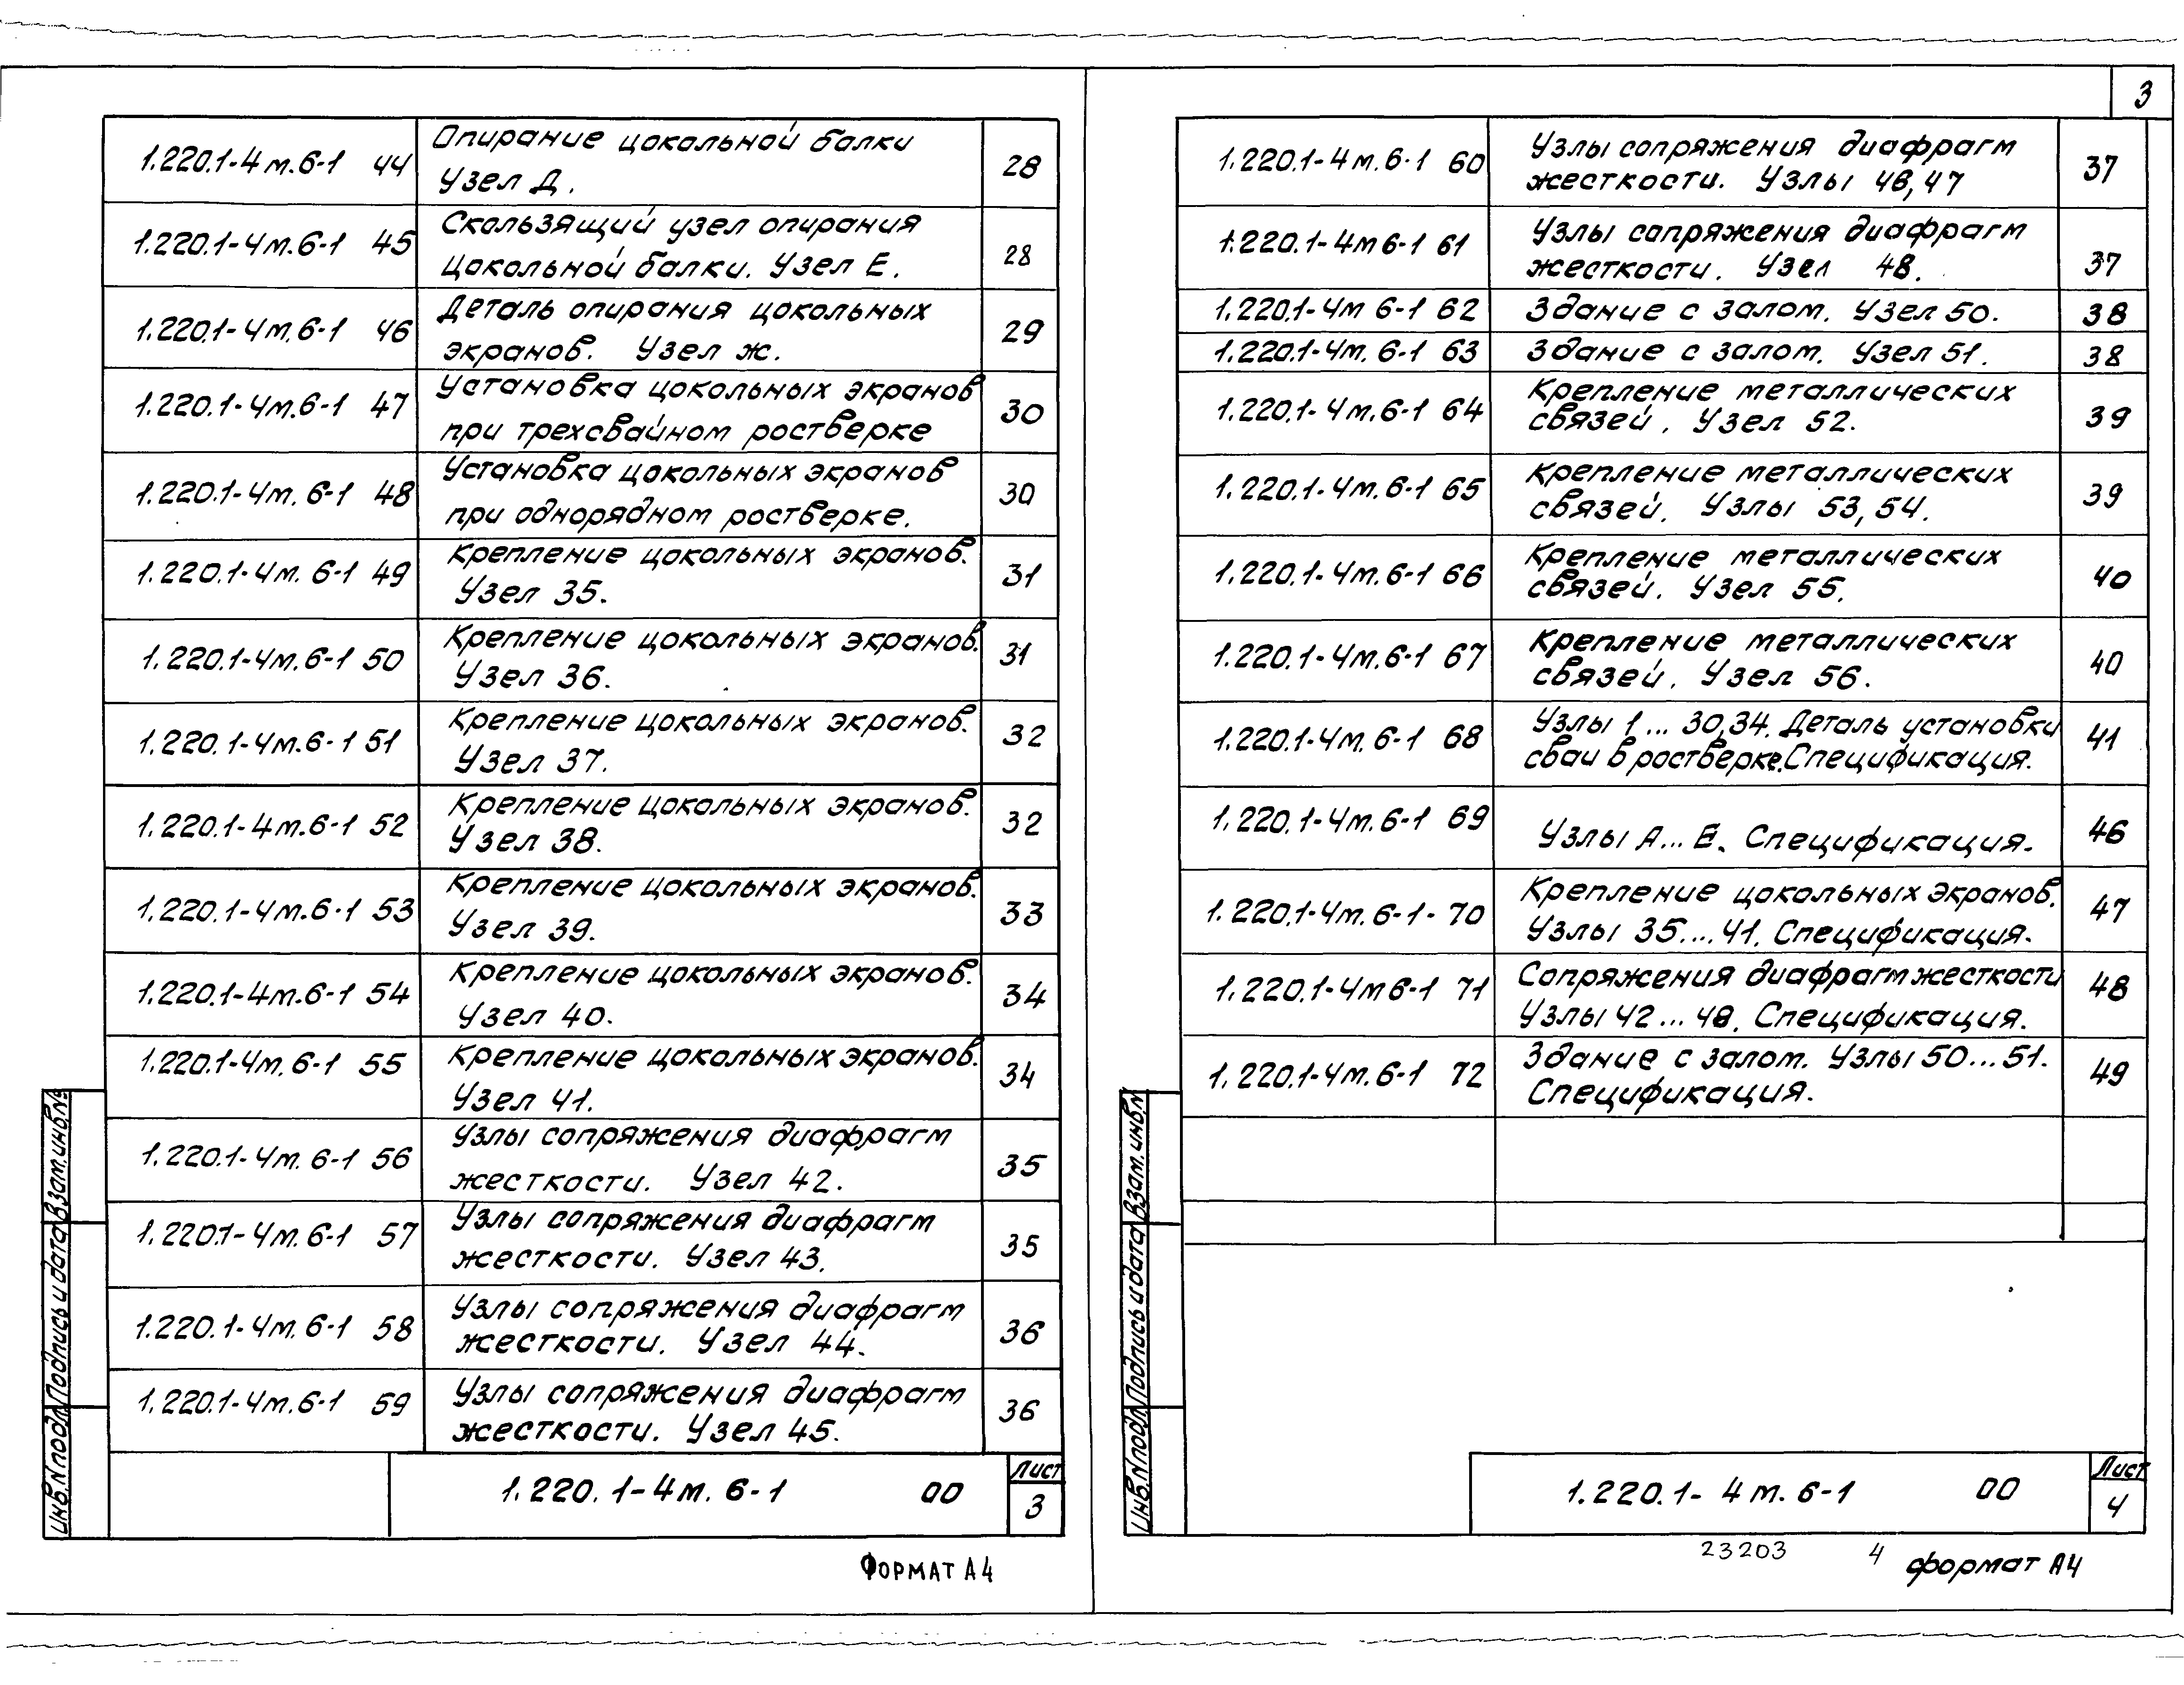 3
1.220.1-4м.6-1 44 Опирание цокольной балки 28
Узел Д.
1.220.1-4м.6-1 45 Скользящий узел опирания 28
цокольной балки. Узел Е.
1.220.1-4м.6-1 46 Деталь опирания цокольных 29
экранов. Узел ж.
1.220.1-4м.6-1 47 Установка цокольных экранов 30
при трехсвайном ростверке
1.220.1-4м.6-1 48 Установка цокольных экранов 30
при однорядном ростверке.
1.220.1-4м.6-1 49 Крепление цокольных экранов. 31
Узел 35.
1.220.1-4м.6-1 50 Крепление цокольных экранов. 31
Узел 36.
1.220.1-4м.6-1 51 Крепление цокольных экранов. 32
Узел 37.
1.220.1-4м.6-1 52 Крепление цокольных экранов. 32
Узел 38.
1.220.1-4м.6-1 53 Крепление цокольных экранов. 33
Узел 39.
1.220.1-4м.6-1 54 Крепление цокольных экранов. 34
Узел 40.
1.220.1-4м.6-1 55 Крепление цокольных экранов. 34
Узел 41.
1.220.1-4м.6-1 56 Узлы сопряжения диафрагм 35
жесткости. Узел 42.
1.220.1-4м.6-1 57 Узлы сопряжения диафрагм 35
жесткости. Узел 43.
1.220.1-4м.6-1 58 Узлы сопряжения диафрагм 36
жесткости. Узел 44.
1.220.1-4м.6-1 59 Узлы сопряжения диафрагм 36
жесткости. Узел 45.
Инв.N подл. Подпись и дата Взам.инв.N
1.220.1-4м.6-1 00
Лист
3
Формат А4
1.220.1-4м.6-1 60 Узлы сопряжения диафрагм 37
жесткости. Узлы 46,47
1.220.1-4м6-1 61 Узлы сопряжения диафрагм 37
жесткости. Узел 48.
1.220.1-4м 6-1 62 Здание с залом. Узел 50. 38
1.220.1-4м.6-1 63 Здание с залом. Узел 51. 38
1.220.1-4м.6-1 64 Крепление металлических 39
связей. Узел 52.
1.220.1-4м.6-1 65 Крепление металлических 39
связей. Узлы 53,54.
1.220.1-4м.6-1 66 Крепление металлических 40
связей. Узел 55.
1.220.1-4м.6-1 67 Крепление металлических 40
связей. Узел 56.
1.220.1-4м.6-1 68 Узлы 1...30,34. Деталь установки 41
сваи в ростверке. Спецификация.
1.220.1-4м.6-1 69 Узлы А...Е. Спецификация. 46
1.220.1-4м.6-1-70 Крепление цокольных экранов. 47
Узлы 35...41. Спецификация.
1.220.1-4м6-1 71 Сопряжения диафрагм жесткости 48
Узлы 42...48. Спецификация.
1.220.1-4м.6-1 72 Здание с залом. Узлы 50...51. 49
Спецификация.
Инв.N подл. Подпись и дата Взам.инв.N
1.220.1-4м.6-1 00
Лист
4
23203 4
формат А4